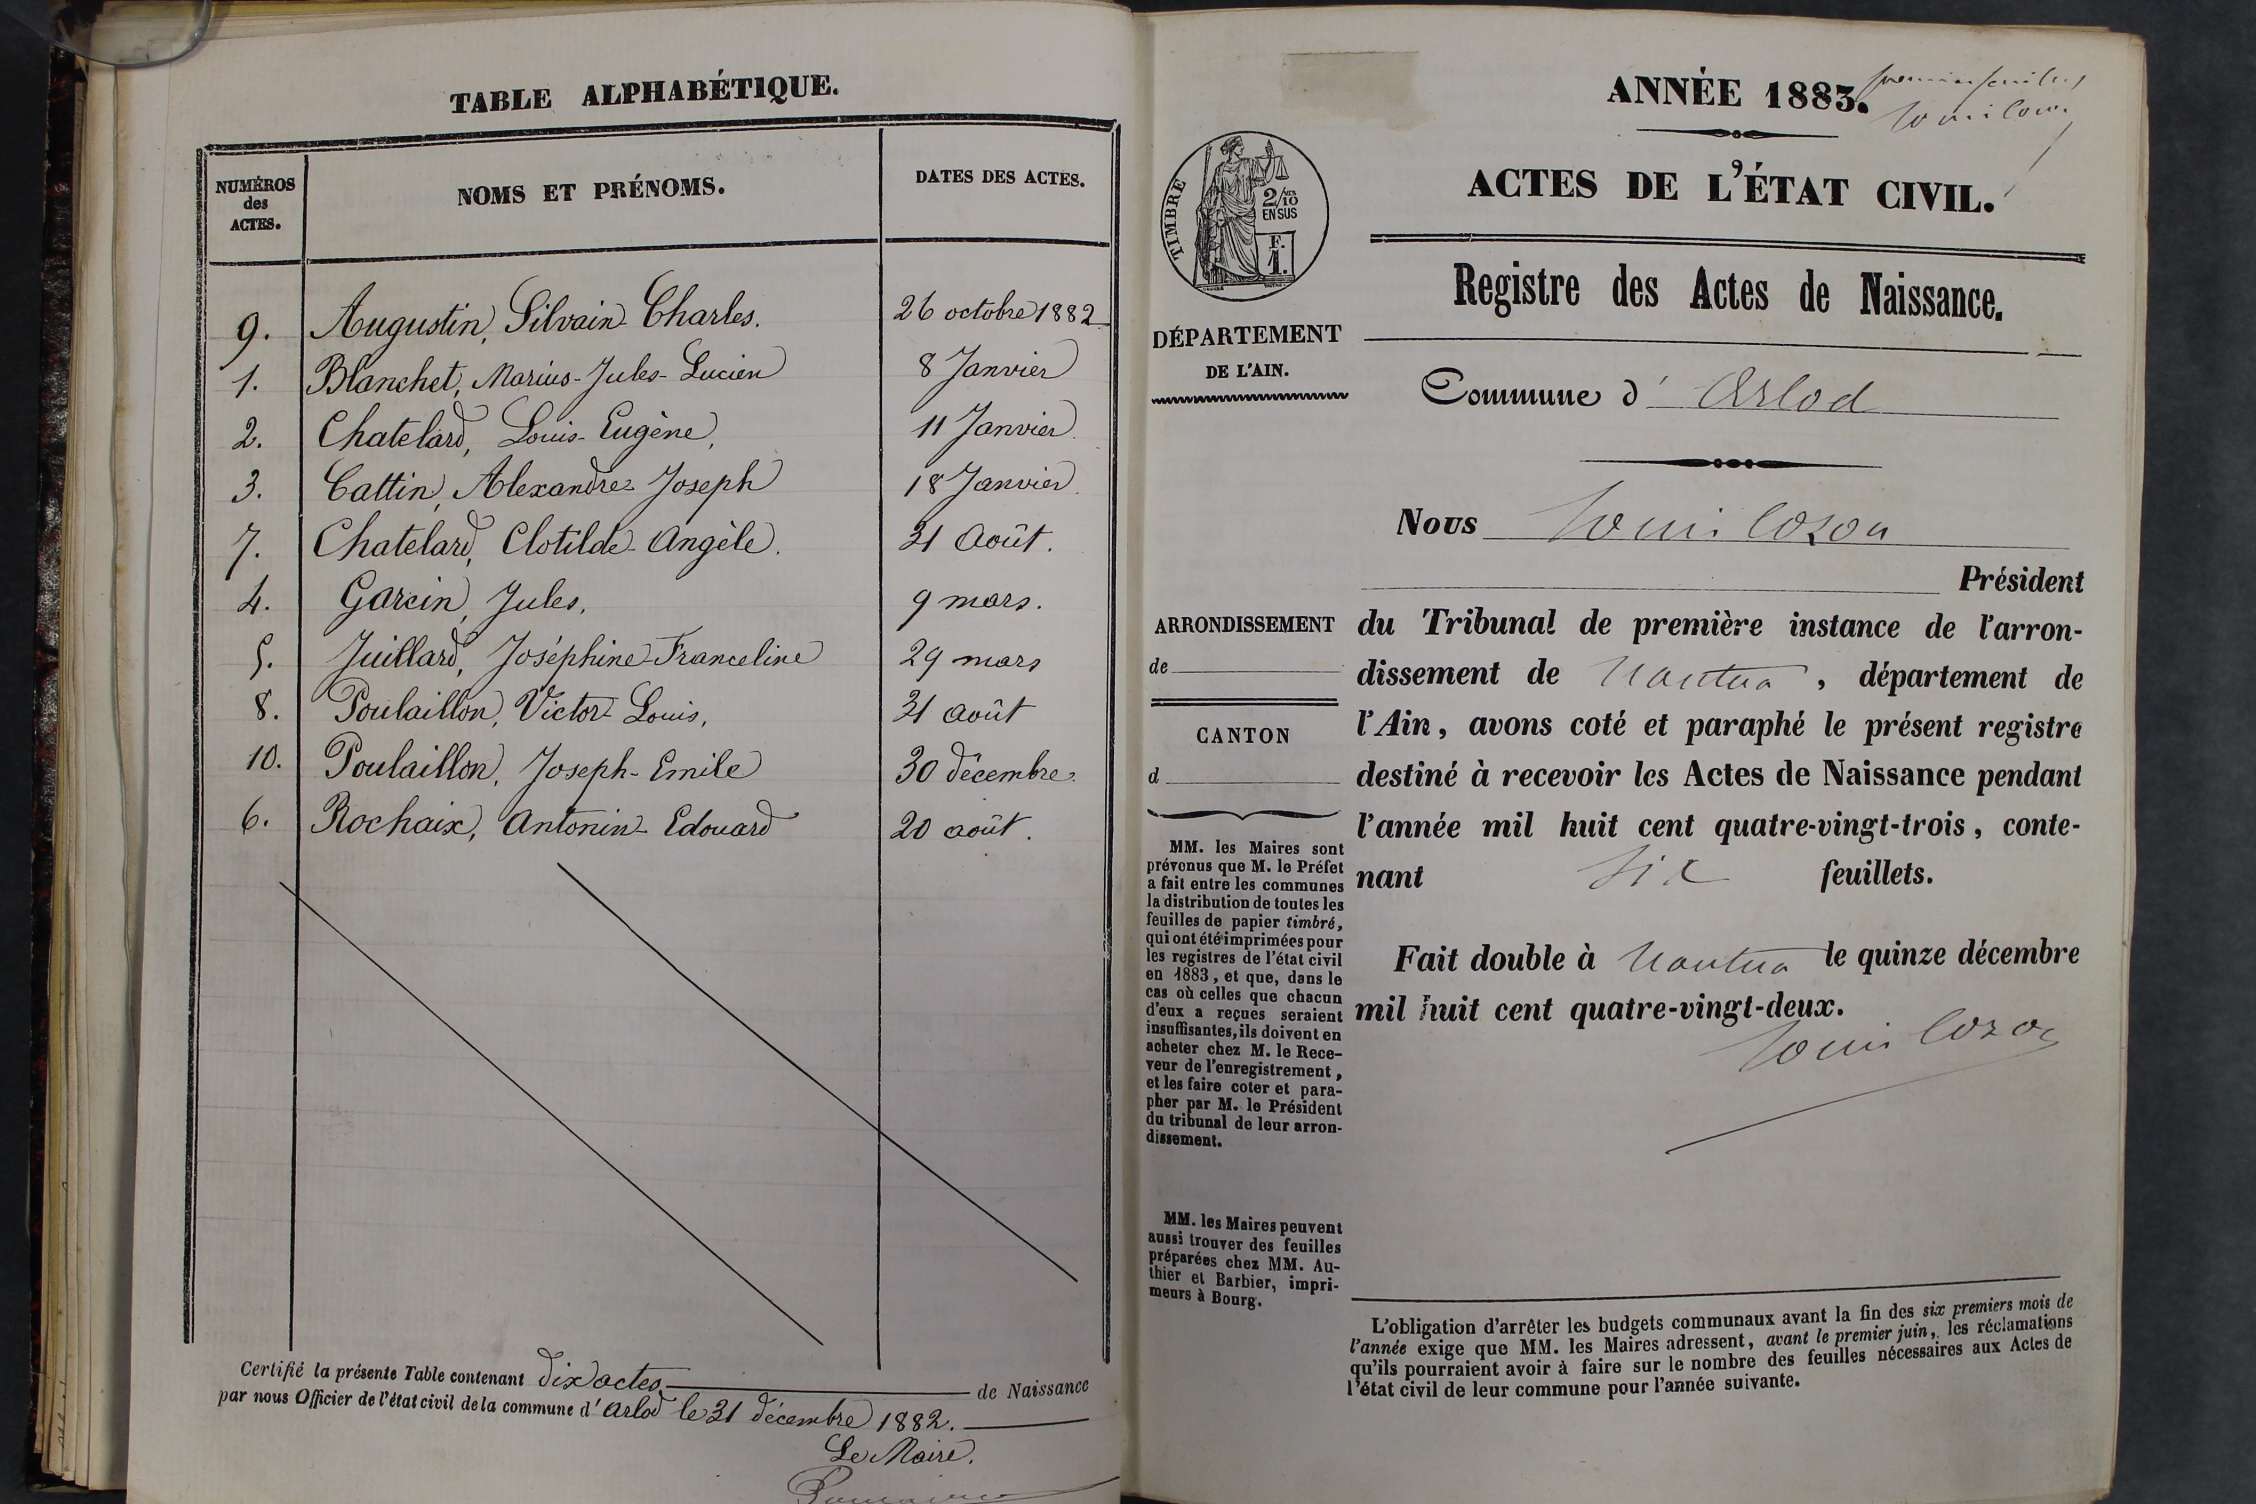 TABLE ALPHABÉTIQUE.
NUMÉROS
des
ACTES.
NOMS ET PRÉNOMS.
DATES DES ACTES.
9. Augustin, Silvain-Charles. 26 octobre 1882
1. Blanchet, Marius-Jules-Lucien 8 Janvier
2. Chatelard, Louis-Eugène, 11 Janvier
3. Cattin, Alexandre-Joseph 18 Janvier
7. Chatelard, Clotilde-Angèle. 31 Août.
4. Garcin, Jules, 9 mars.
5. Juillard, Joséphine-Franceline 29 mars
8. Poulaillon, Victor-Louis, 31 août
10. Poulaillon, Joseph-Emile 30 décembre
6. Rochaix, Antonin-Edouard 20 août.
Certifié la présente Table contenant dix actes de Naissance
par nous Officier de l'état civil de la commune d' Arlod le 31 décembre 1882.
Le Maire.
ANNÉE 1883.
ACTES DE L'ÉTAT CIVIL.
Registre des Actes de Naissance.
TIMBRE
2/10
EN SUS
F.
1.
DÉPARTEMENT
DE L'AIN.
Commune d' Arlod
ARRONDISSEMENT
de
CANTON
d
MM. les Maires sont
prévenus que M. le Préfet
a fait entre les communes
la distribution de toutes les
feuilles de papier timbré,
qui ont été imprimées pour
les registres de l'état civil
en 1883, et que, dans le
cas où celles que chacun
d'eux a reçues seraient
insuffisantes, ils doivent en
acheter chez M. le Rece-
veur de l'enregistrement,
et les faire coter et para-
pher par M. le Président
du tribunal de leur arron-
dissement.
MM. les Maires peuvent
aussi trouver des feuilles
préparées chez MM. Au-
thier et Barbier, impri-
meurs à Bourg.
Nous
Président
du Tribunal de première instance de l'arron-
dissement de Nantua, département de
l'Ain, avons coté et paraphé le présent registre
destiné à recevoir les Actes de Naissance pendant
l'année mil huit cent quatre-vingt-trois, conte-
nant six feuillets.
Fait double à Nantua le quinze décembre
mil huit cent quatre-vingt-deux.
L'obligation d'arrêter les budgets communaux avant la fin des six premiers mois de
l'année exige que MM. les Maires adressent, avant le premier juin, les réclamations
qu'ils pourraient avoir à faire sur le nombre des feuilles nécessaires aux Actes de
l'état civil de leur commune pour l'année suivante.